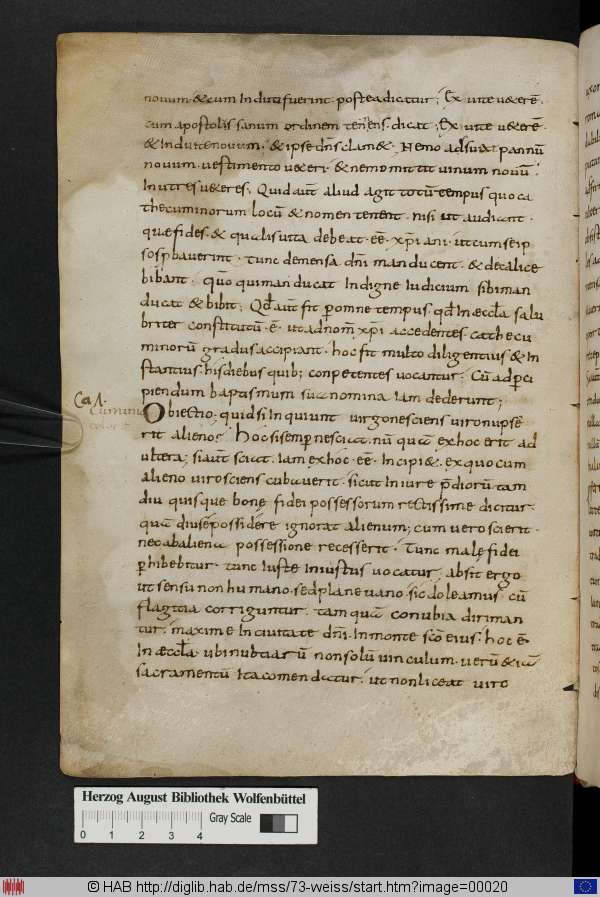 nouum · & cum Induti fuerint · postea dicitur ; Ex uite u&erē ·
cum apostolus sanum ordinem tenens · dicat · Ex uite u&erē
& Induite nouum · & ipse dn̄s clam& · Nemo adsuit pannū
nouum · uestimento u&eri · & nemo mittit uinum nouū ·
In utres u&eres ; Quid aut̄ aliud agit totū tempus quo ca
thecuminorum locū & nomen tenent · nisi ut audiant ·
quæ fides · & qualis uita debeat · ēē · xp̄iani · ut cum se ip
sos pbauerint · tunc de mensa dn̄i manducent · & de calice
bibant · qūo qui manducat Indigne Iudicium sibi man
ducat & bibit ; Qd̄ aut̄ fit p omne tempus · qd̄ In æccl̄a salu
briter constitutū · ē · ut ad nom̄ xp̄i accedentes · cathecu
minorū gradus accipiant · hoc fit multo diligentius & In
stantius · his diebus quib; conpetentes uocantur · Cū ad pci
piendum baptismum sua nomina Iam dederunt ;
Ca
Obiectio · quid si Inquiunt uirgo nesciens uiro nupse
rit alieno ? hoc si semp nesciat · nū quā ex hoc erit ad
ultera ; si aut̄ sciat · Iam ex hoc · ēē · Incipi& · ex quo cum
alieno uiro sciens cubauerit · sicut In iure p̄diorū tam
diu quisque bonę fidei possessorum rectissime dicitur ·
quā diu se possidere ignorat alienum ; cum uero scierit ·
nec ab aliena possessione recesserit · Tunc malę fidei
phibebitur · tunc Iuste Iniustus uocatur · absit ergo
ut sensu non humano · sed plane uano · sic doleamus · cū
flagitia corriguntur · tam quā conubia diriman
tur · maxime In ciuitate dn̄i · In monte sc̄o eius · hoc ē
In æccl̄a · ubi nubtiarū non solū uinculum · uerū & iā
sacramentū Ita comendatur · ut non liceat uiro
Herzog August Bibliothek Wolfenbüttel
0 1 2 3 4 Gray Scale
© HAB http://diglib.hab.de/mss/73-weiss/start.htm?image=00020